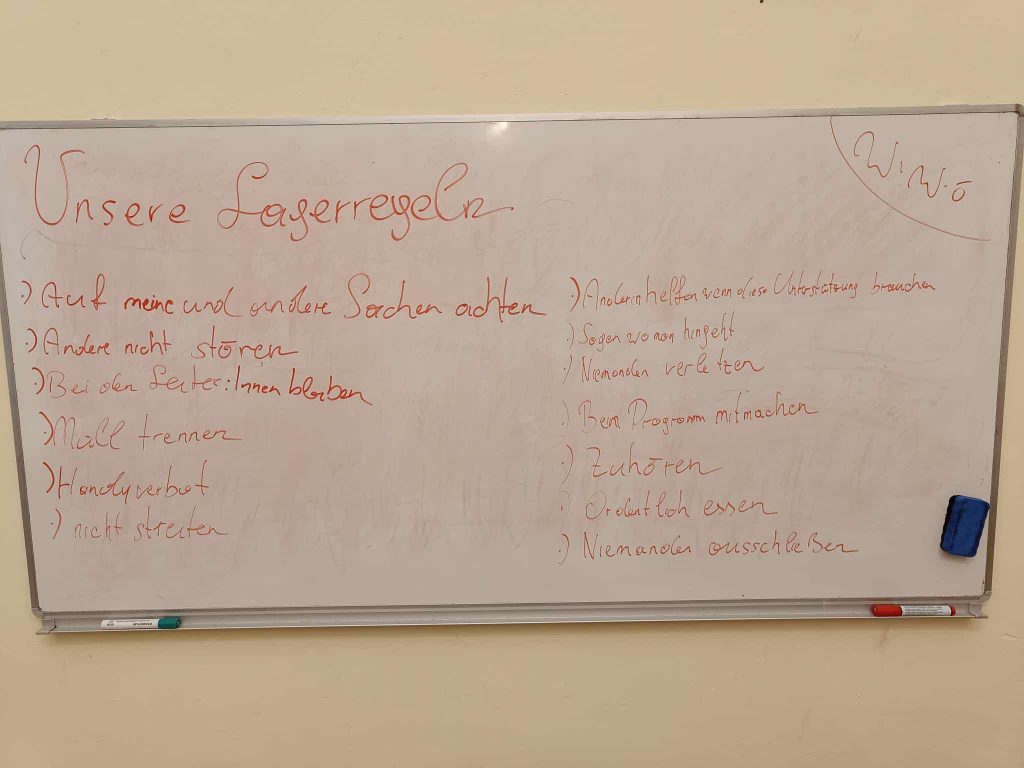 Unsere Lagerregeln
W.WÖ
·) Auf meine und andere Sachen achten
·) Andere nicht stören
·) Bei den Leiter:Innen bleiben
·) Müll trennen
·) Handyverbot
·) nicht streiten
·) Anderen helfen wenn diese Unterstützung brauchen
·) Sagen wo man hingeht
·) Niemanden verletzen
·) Beim Programm mitmachen
·) Zuhören
·) Ordentlich essen
·) Niemanden ausschließen